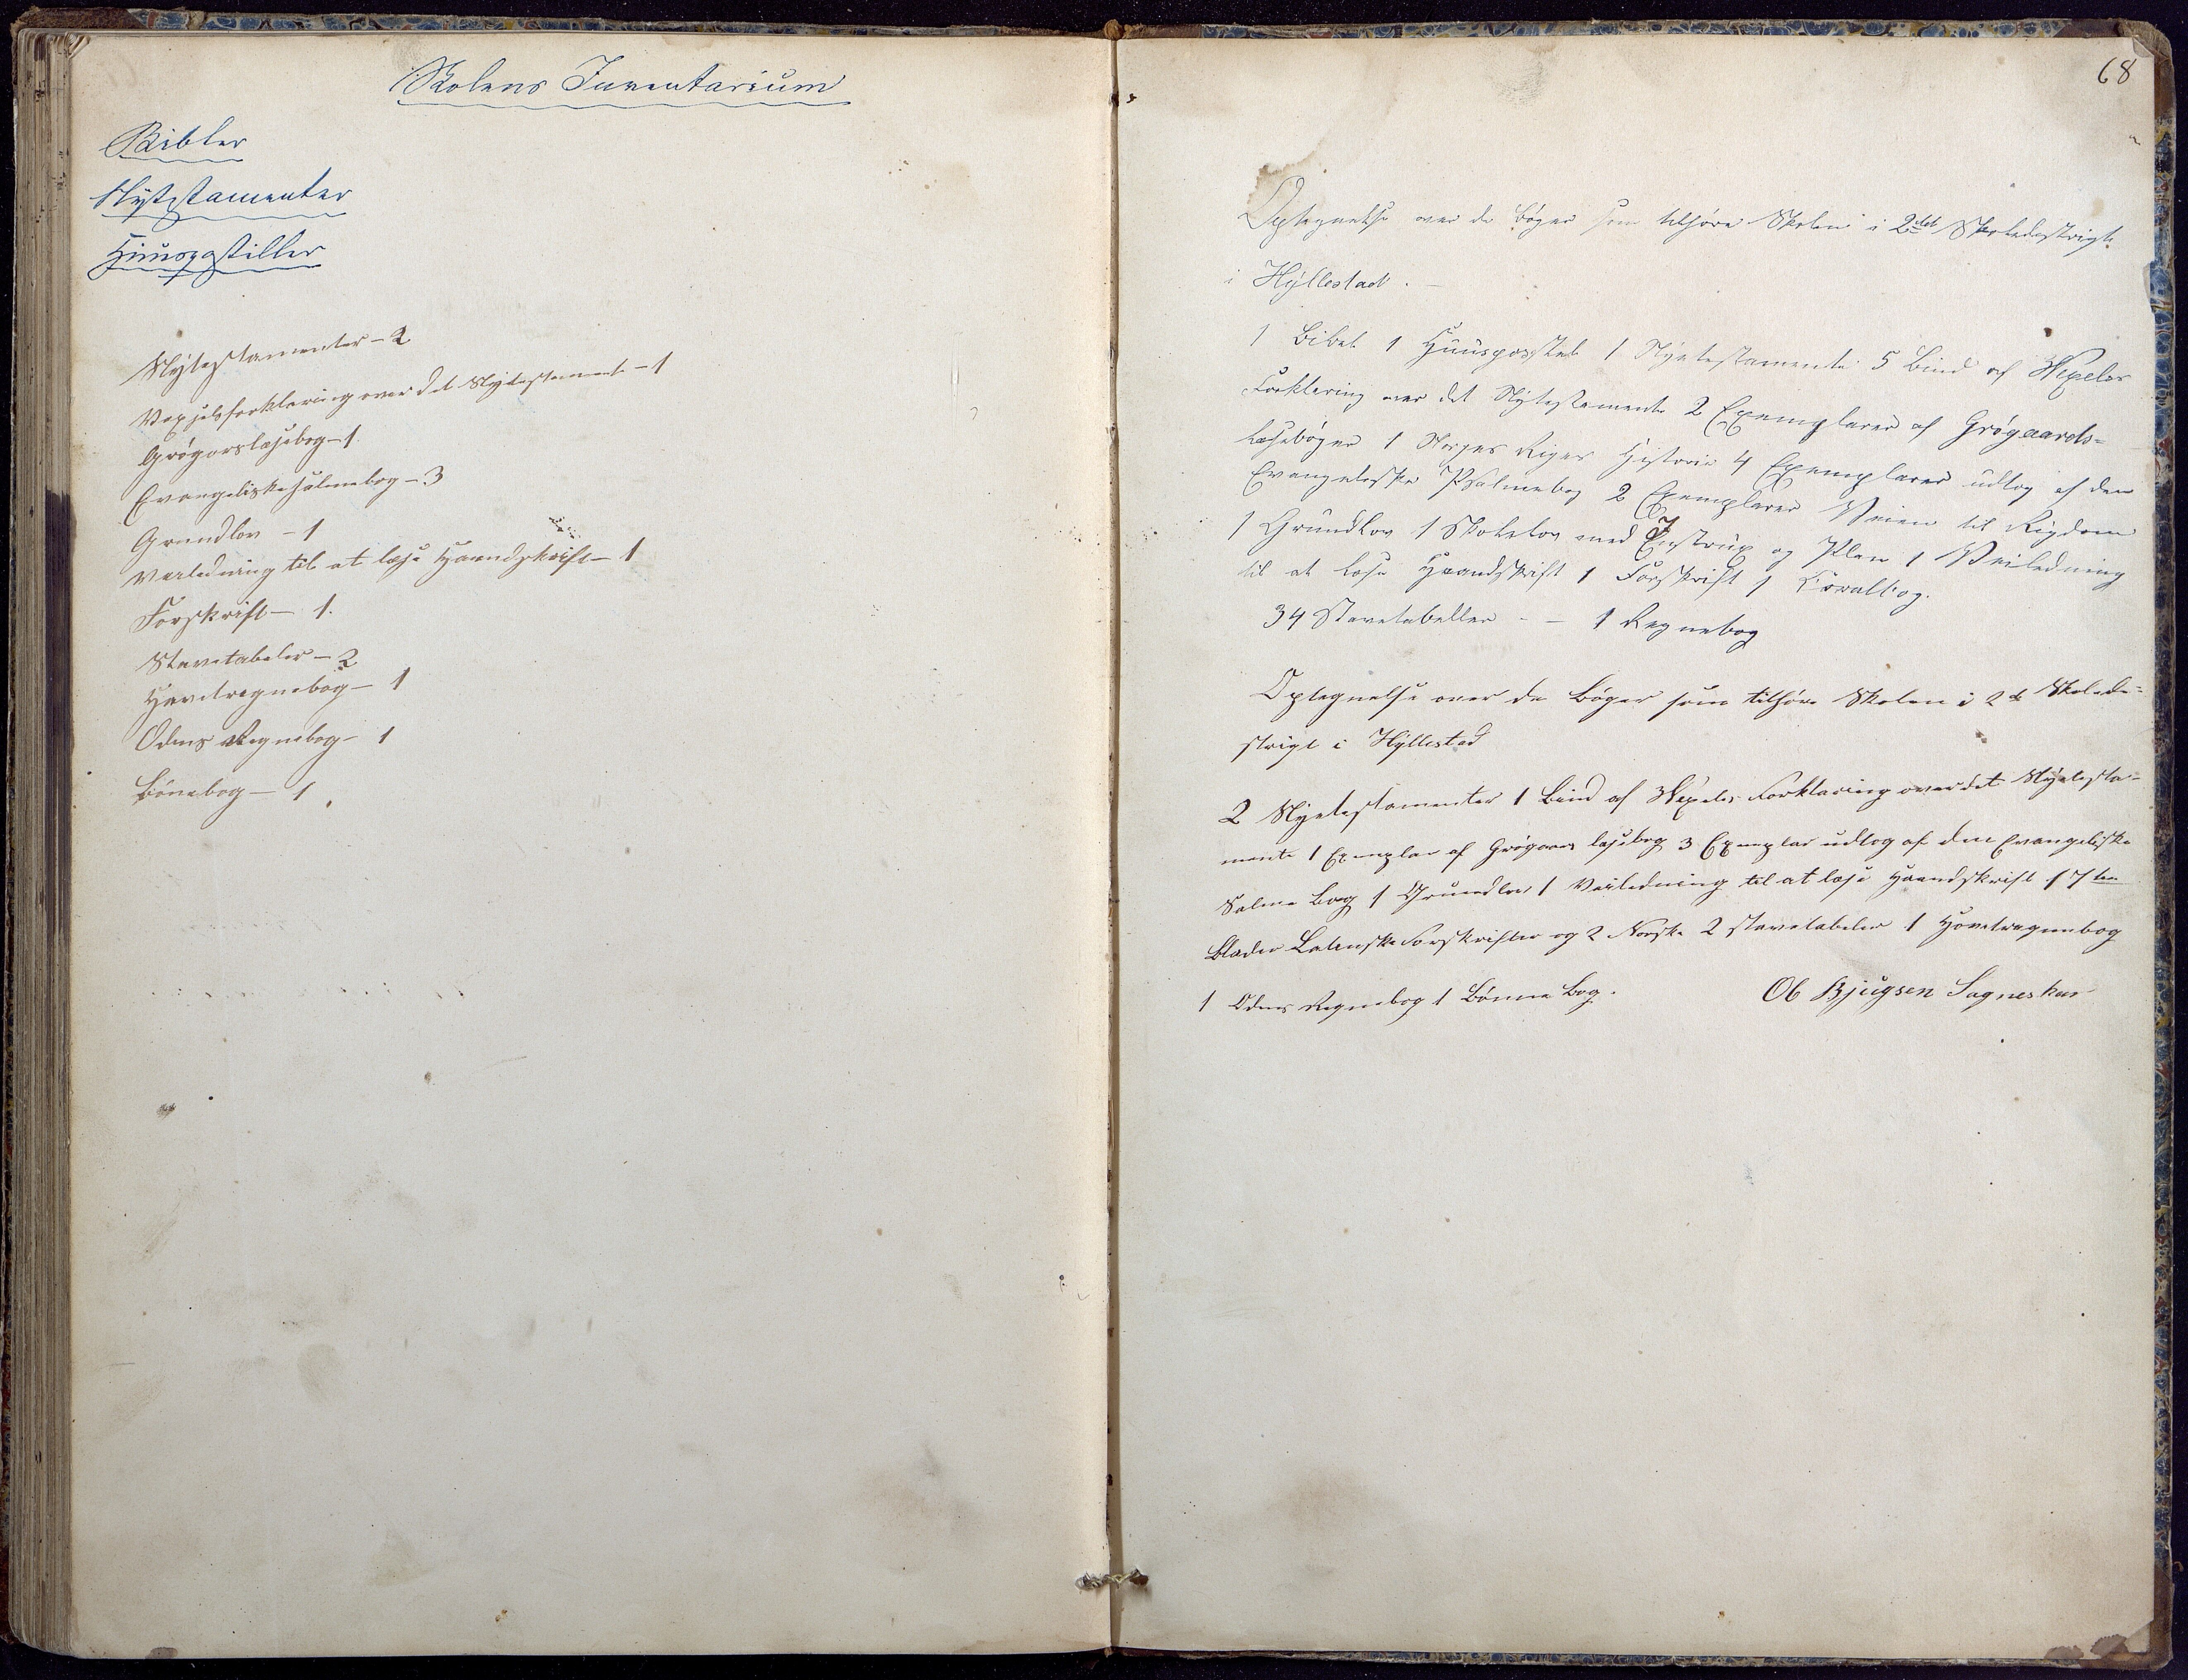 Skolens Inventarium
Bibler
Nytestamenter
Huuspostiller
Nytestamenter - 2
Vexelsforklaring over det Nytestamente - 1
Grøgarslæsebog - 1.
Evangeliskesalmebog - 3
Grundlov - 1
Veiledning til at læse Haandskrift - 1
Forskrift - 1.
Stavetabeler - 2
Hovetregnebog - 1
Odens Regnebog - 1
Bönebog - 1.
68
Optegnelse over de Bøger som tilhøre Skolen i 2det Skoledestrigt
i Hyllestad. -
1 Bibel 1 Huuspostil 1 Nyetestamente 5 Bind af Wexelss
Forklaring over det Nytestamente 2 Exemplarer af Grøgaards=
Læsebøger 1 Norges Riges Historie 4 Exemplarer udtog af den
Evangeleske Psalmebog 2 Exemplarer Veien til Rigdom
1 Grundlov 1 Skolelov med og Plan 1 Veiledning
til at læse Haandskrift 1 Forskrift 1 Koralbog.
34 Stavetabeller - - 1 Regnebog
Optegnelse over de Bøger som tilhøre Skolen i 2de Skolede=
strigt i Hyllestad
2 Nyetestamenter 1 Bind af Wexels Forklaring over det Nyetesta=
mente 1 Exemplar af Grøgaars læsebog 3 Exemplar udtog af den Evangeliske
Salme Bog 1 Grundlov 1 Veiledning til at læse Haandskrift 1 7 
Blader Latenske Forskrifter og 2 Norske 2 stavetabeler 1 Hovetregnebog
1 Odens Regnebog 1 Bönne Bog. Ol Bjugsen Sagneskar